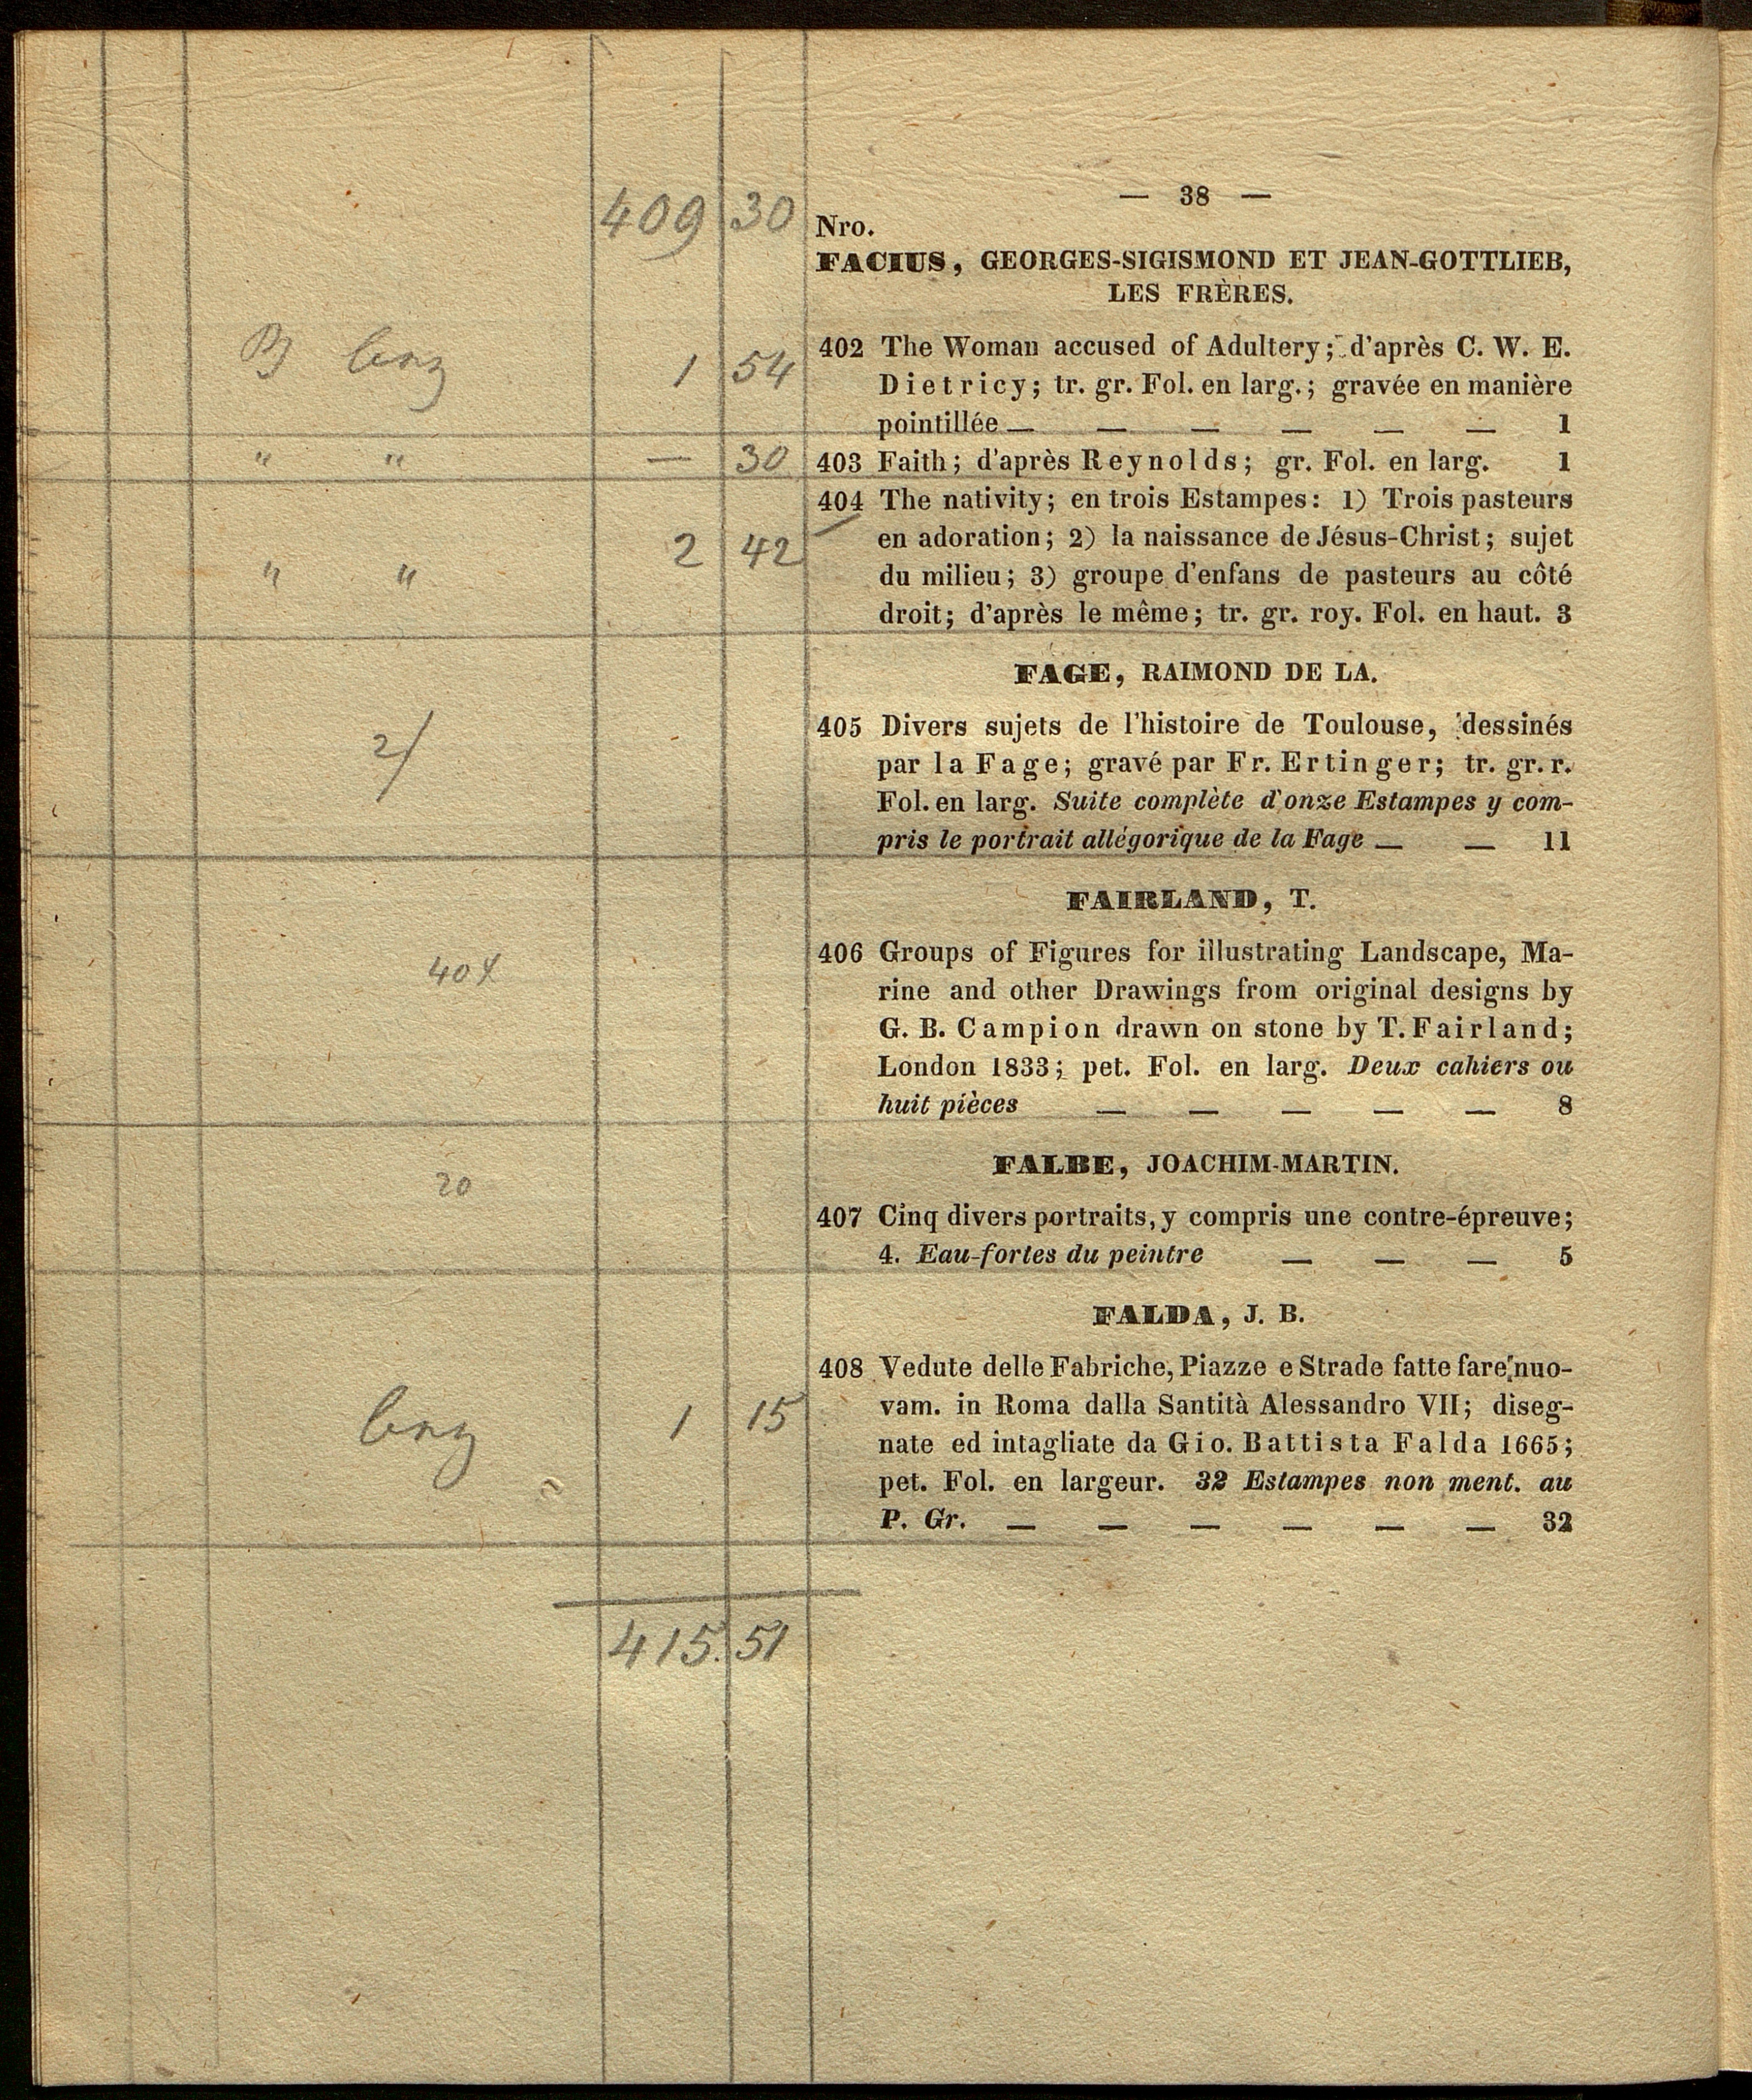 — 38 —
409 30 Nro.
FACIUS, GEORGES-SIGISMOND ET JEAN-GOTTLIEB,
LES FRÈRES.
1 54 402 The Woman accused of Adultery; d'après C. W. E.
Dietricy; tr. gr. Fol. en larg.; gravée en manière
pointillée — — — — — — 1
" " — 30 403 Faith; d'après Reynolds; gr. Fol. en larg. 1
404 The nativity; en trois Estampes: 1) Trois pasteurs
" " 2 42 en adoration; 2) la naissance de Jésus-Christ; sujet
du milieu; 3) groupe d'enfans de pasteurs au côté
droit; d'après le même; tr. gr. roy. Fol. en haut. 3
FAGE, RAIMOND DE LA.
2/ 405 Divers sujets de l'histoire de Toulouse, dessinés
par la Fage; gravé par Fr. Ertinger; tr. gr. r.
Fol. en larg. Suite complète d'onze Estampes y com-
pris le portrait allégorique de la Fage — — 11
FAIRLAND, T.
406 Groups of Figures for illustrating Landscape, Ma-
rine and other Drawings from original designs by
G. B. Campion drawn on stone by T. Fairland;
London 1833; pet. Fol. en larg. Deux cahiers ou
huit pièces — — — — — 8
FALBE, JOACHIM-MARTIN.
20 407 Cinq divers portraits, y compris une contre-épreuve;
4. Eau-fortes du peintre — — — 5
FALDA, J. B.
408 Vedute delle Fabriche, Piazze e Strade fatte fare nuo-
1 15 vam. in Roma dalla Santità Alessandro VII; diseg-
nate ed intagliate da Gio. Battista Falda 1665;
pet. Fol. en largeur. 32 Estampes non ment. au
P. Gr. — — — — — — 32
415. 51